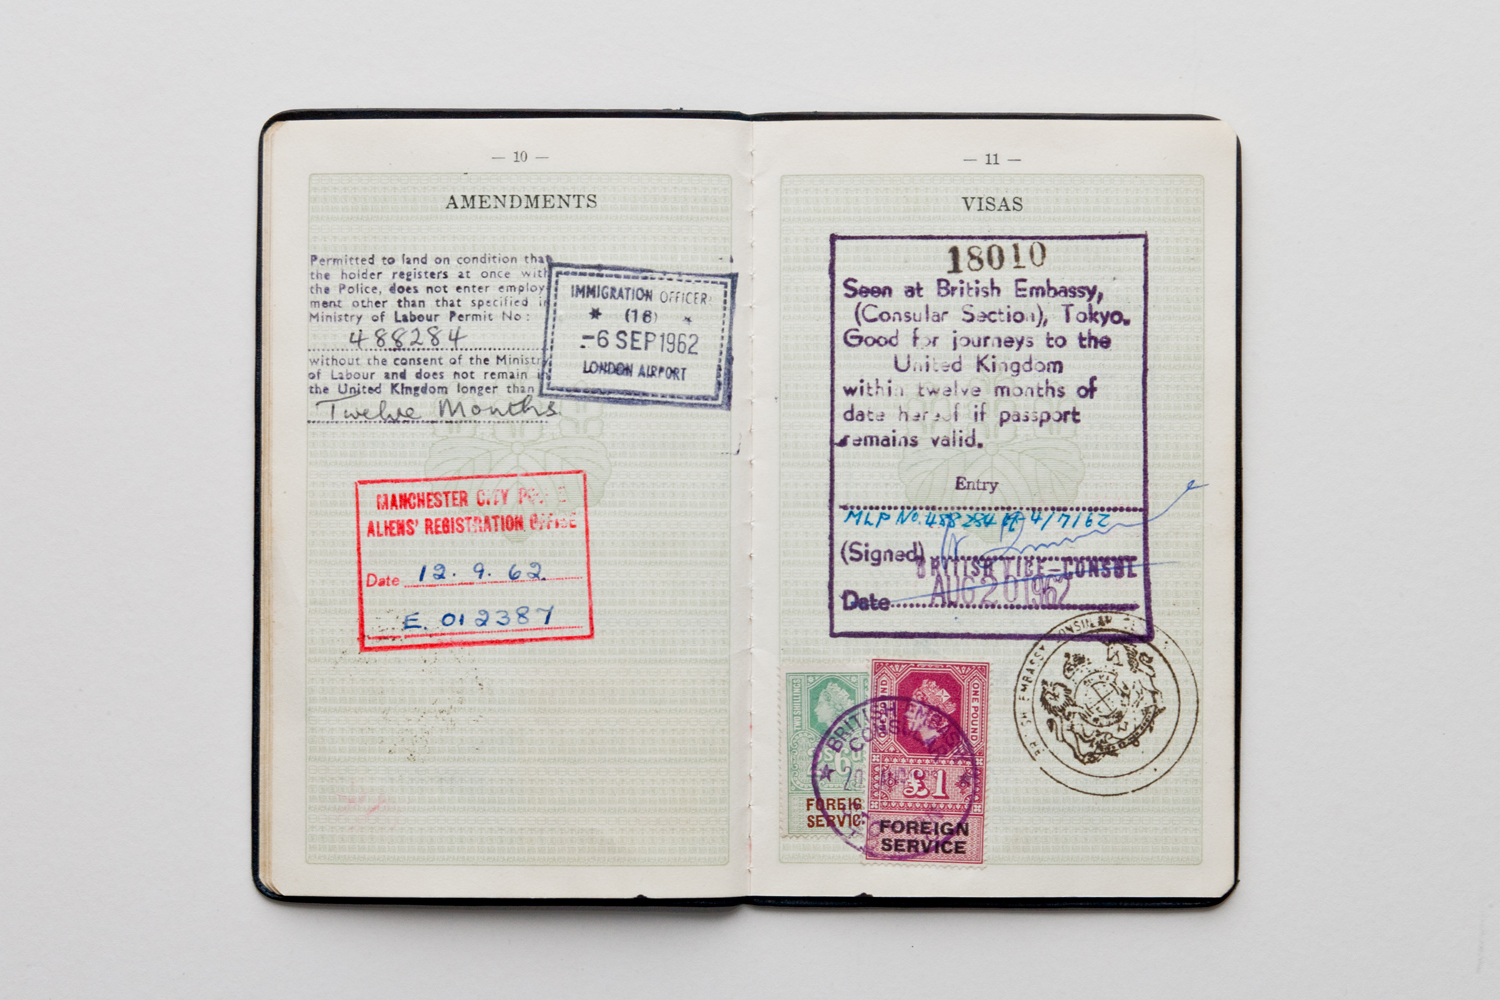 — 10 —
AMENDMENTS
Permitted to land on condition tha
the holder registers at once with
the Police, does not enter employ
ment other than that specified i
Ministry of Labour Permit No:
488284
without the consent of the Ministr
of Labour and does not remain
the United Kingdom longer than
Twelve Months
IMMIGRATION OFFICER
★ (18) ★
-6 SEP 1962
LONDON AIRPORT
MANCHESTER CITY
ALIENS' REGISTRATION OFFICE
Date 12. 9. 62.
E. 012387
— 11 —
VISAS
18010
Seen at British Embassy,
(Consular Section), Tokyo.
Good for journeys to the
United Kingdom
within twelve months of
date hereof if passport
remains valid.
Entry
MLP No. 488284 of 4/7/62
(Signed)
BRITISH VICE-CONSUL
Date AUG 20 1962
TWO SHILLINGS
FOREIG
SERVIC
POUND
ONE POUND
£1
FOREIGN
SERVICE
BRITISH EMBASSY
★ 20 ★
SH EMBASSY CONSULAR